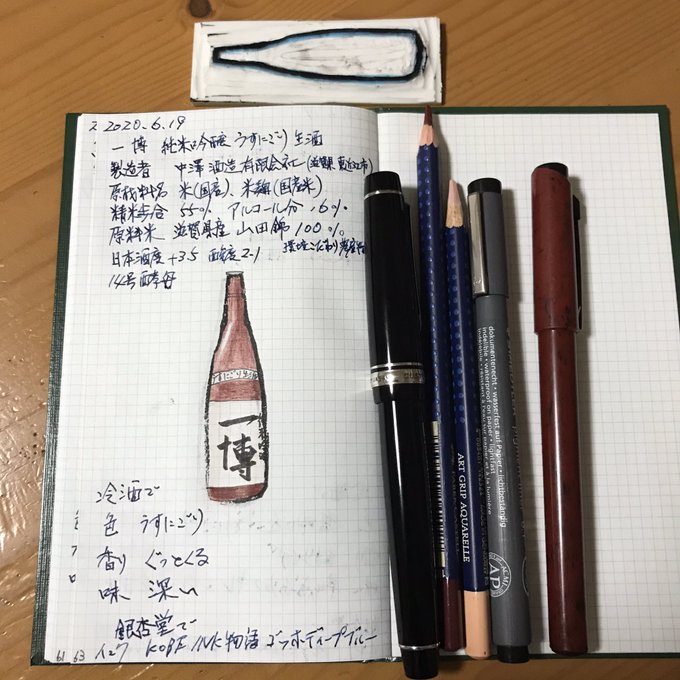 2020.6.19
一博 純米吟醸 うすにごり 生酒
製造者 中澤酒造有限会社(滋賀県東近江市)
原材料名 米(国産)、米麹(国産米)
精米歩合 55% アルコール分 16%
原料米 滋賀県産 山田錦 100%
日本酒度 +3.5 酸度 2.1 環境こだわり農産物
14号酵母
うすにごり生酒
一博
冷酒で
色 うすにごり
香り ぐっとくる
味 深い
銀杏堂で
インク KOBE INK物語 ゴッホディープブルー
61 63
ART GRIP AQUARELLE
dokumentenecht • wasserfest auf Papier • lichtbeständig
indelible • waterproof on paper • lightfast